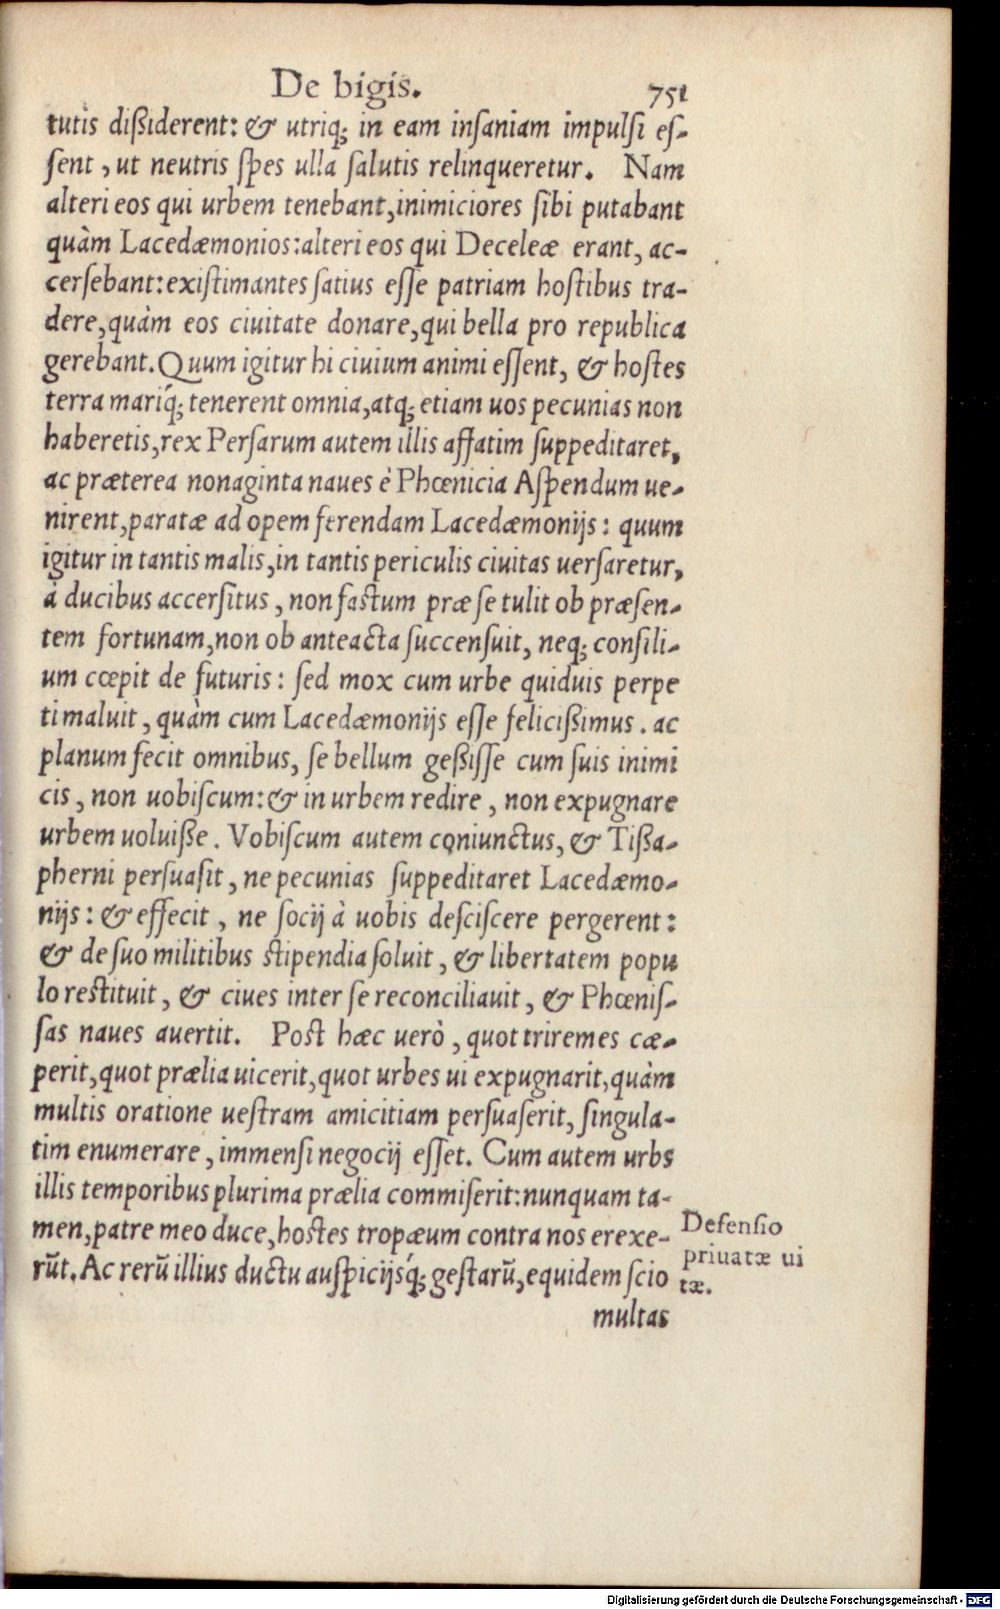 De bigis. 751
tutis dißiderent: & utriq; in eam inſaniam impulſi eſ-
ſent, ut neutris ſpes ulla ſalutis relinqueretur. Nam
alteri eos qui urbem tenebant, inimiciores ſibi putabant
quàm Lacedæmonios: alteri eos qui Deceleæ erant, ac-
cerſebant: exiſtimantes ſatius eſſe patriam hoſtibus tra-
dere, quàm eos ciuitate donare, qui bella pro republica
gerebant. Quum igitur hi ciuium animi eſſent, & hoſtes
terra mariq́; tenerent omnia, atq; etiam uos pecunias non
haberetis, rex Perſarum autem illis affatim ſuppeditaret,
ac præterea nonaginta naues è Phœnicia Aſpendum ue-
nirent, paratæ ad opem ferendam Lacedæmonijs: quum
igitur in tantis malis, in tantis periculis ciuitas uerſaretur,
à ducibus accerſitus, non faſtum præ ſe tulit ob præſen-
tem fortunam, non ob anteacta ſuccenſuit, neq; conſili-
um cœpit de futuris: ſed mox cum urbe quiduis perpe
ti maluit, quàm cum Lacedæmonijs eſſe felicißimus. ac
planum fecit omnibus, ſe bellum geßiſſe cum ſuis inimi
cis, non uobiſcum: & in urbem redire, non expugnare
urbem uoluiße. Vobiſcum autem coniunctus, & Tißa-
pherni perſuaſit, ne pecunias ſuppeditaret Lacedæmo-
nijs: & effecit, ne ſocij à uobis deſciſcere pergerent:
& de ſuo militibus ſtipendia ſoluit, & libertatem popu
lo reſtituit, & ciues inter ſe reconciliauit, & Phœniſ-
ſas naues auertit. Poſt hæc uerò, quot triremes cæ-
perit, quot prælia uicerit, quot urbes ui expugnarit, quàm
multis oratione ueſtram amicitiam perſuaſerit, ſingula-
tim enumerare, immenſi negocij eſſet. Cum autem urbs
illis temporibus plurima prælia commiſerit: nunquam ta-
men, patre meo duce, hoſtes tropæum contra nos erexe-
rũt. Ac rerũ illius ductu auſpicijsq́; geſtarũ, equidem ſcio
multas
Defenſio
priuatæ ui
tæ.
Digitalisierung gefördert durch die Deutsche Forschungsgemeinschaft - DFG